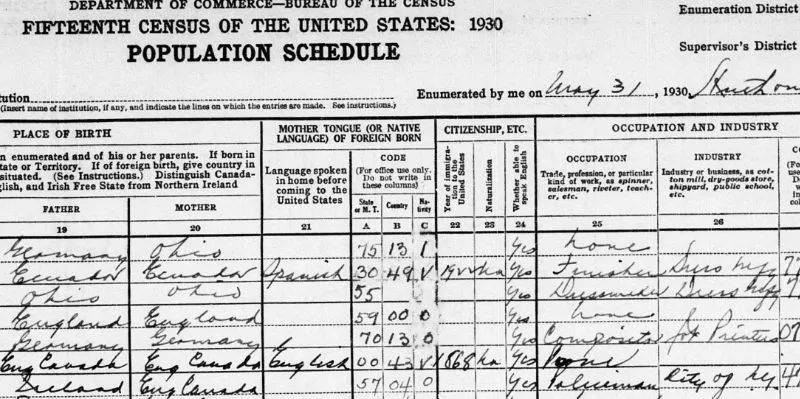 DEPARTMENT OF COMMERCE—BUREAU OF THE CENSUS
FIFTEENTH CENSUS OF THE UNITED STATES: 1930
POPULATION SCHEDULE
Enumeration District
Supervisor's District
tution
(Insert name of institution, if any, and indicate the lines on which the entries are made. See instructions.)
Enumerated by me on May 31, 1930,
PLACE OF BIRTH
MOTHER TONGUE (OR NATIVE LANGUAGE) OF FOREIGN BORN
CITIZENSHIP, ETC.
OCCUPATION AND INDUSTRY
n enumerated and of his or her parents. If born in
tate or Territory. If of foreign birth, give country in
situated. (See Instructions.) Distinguish Canada-
glish, and Irish Free State from Northern Ireland
Language spoken in home before coming to the United States
CODE
(For office use only. Do not write in these columns)
Year of immigration to the United States
Naturalization
Whether able to speak English
OCCUPATION
Trade, profession, or particular kind of work, as spinner, salesman, riveter, teacher, etc.
INDUSTRY
Industry or business, as cotton mill, dry-goods store, shipyard, public school, etc.
FATHER MOTHER State or M. T. Country Nativity
19 20 21 A B C 22 23 24 25 26
Germany Ohio 75 13 1 Yes none
Ecuador Ecuador Spanish 30 49 V na Yes Finisher Dress mfg 7
Ohio Ohio 55 Yes Dressmaker Dress mfg 7
England England 59 00 0 Yes none
Germany Germany 70 13 0 Yes Compositor Printers 07
Eng Canada Eng Canada English 00 43 V 1868 na Yes None
Ireland Eng Canada 57 04 0 Yes Policeman City of NY 4